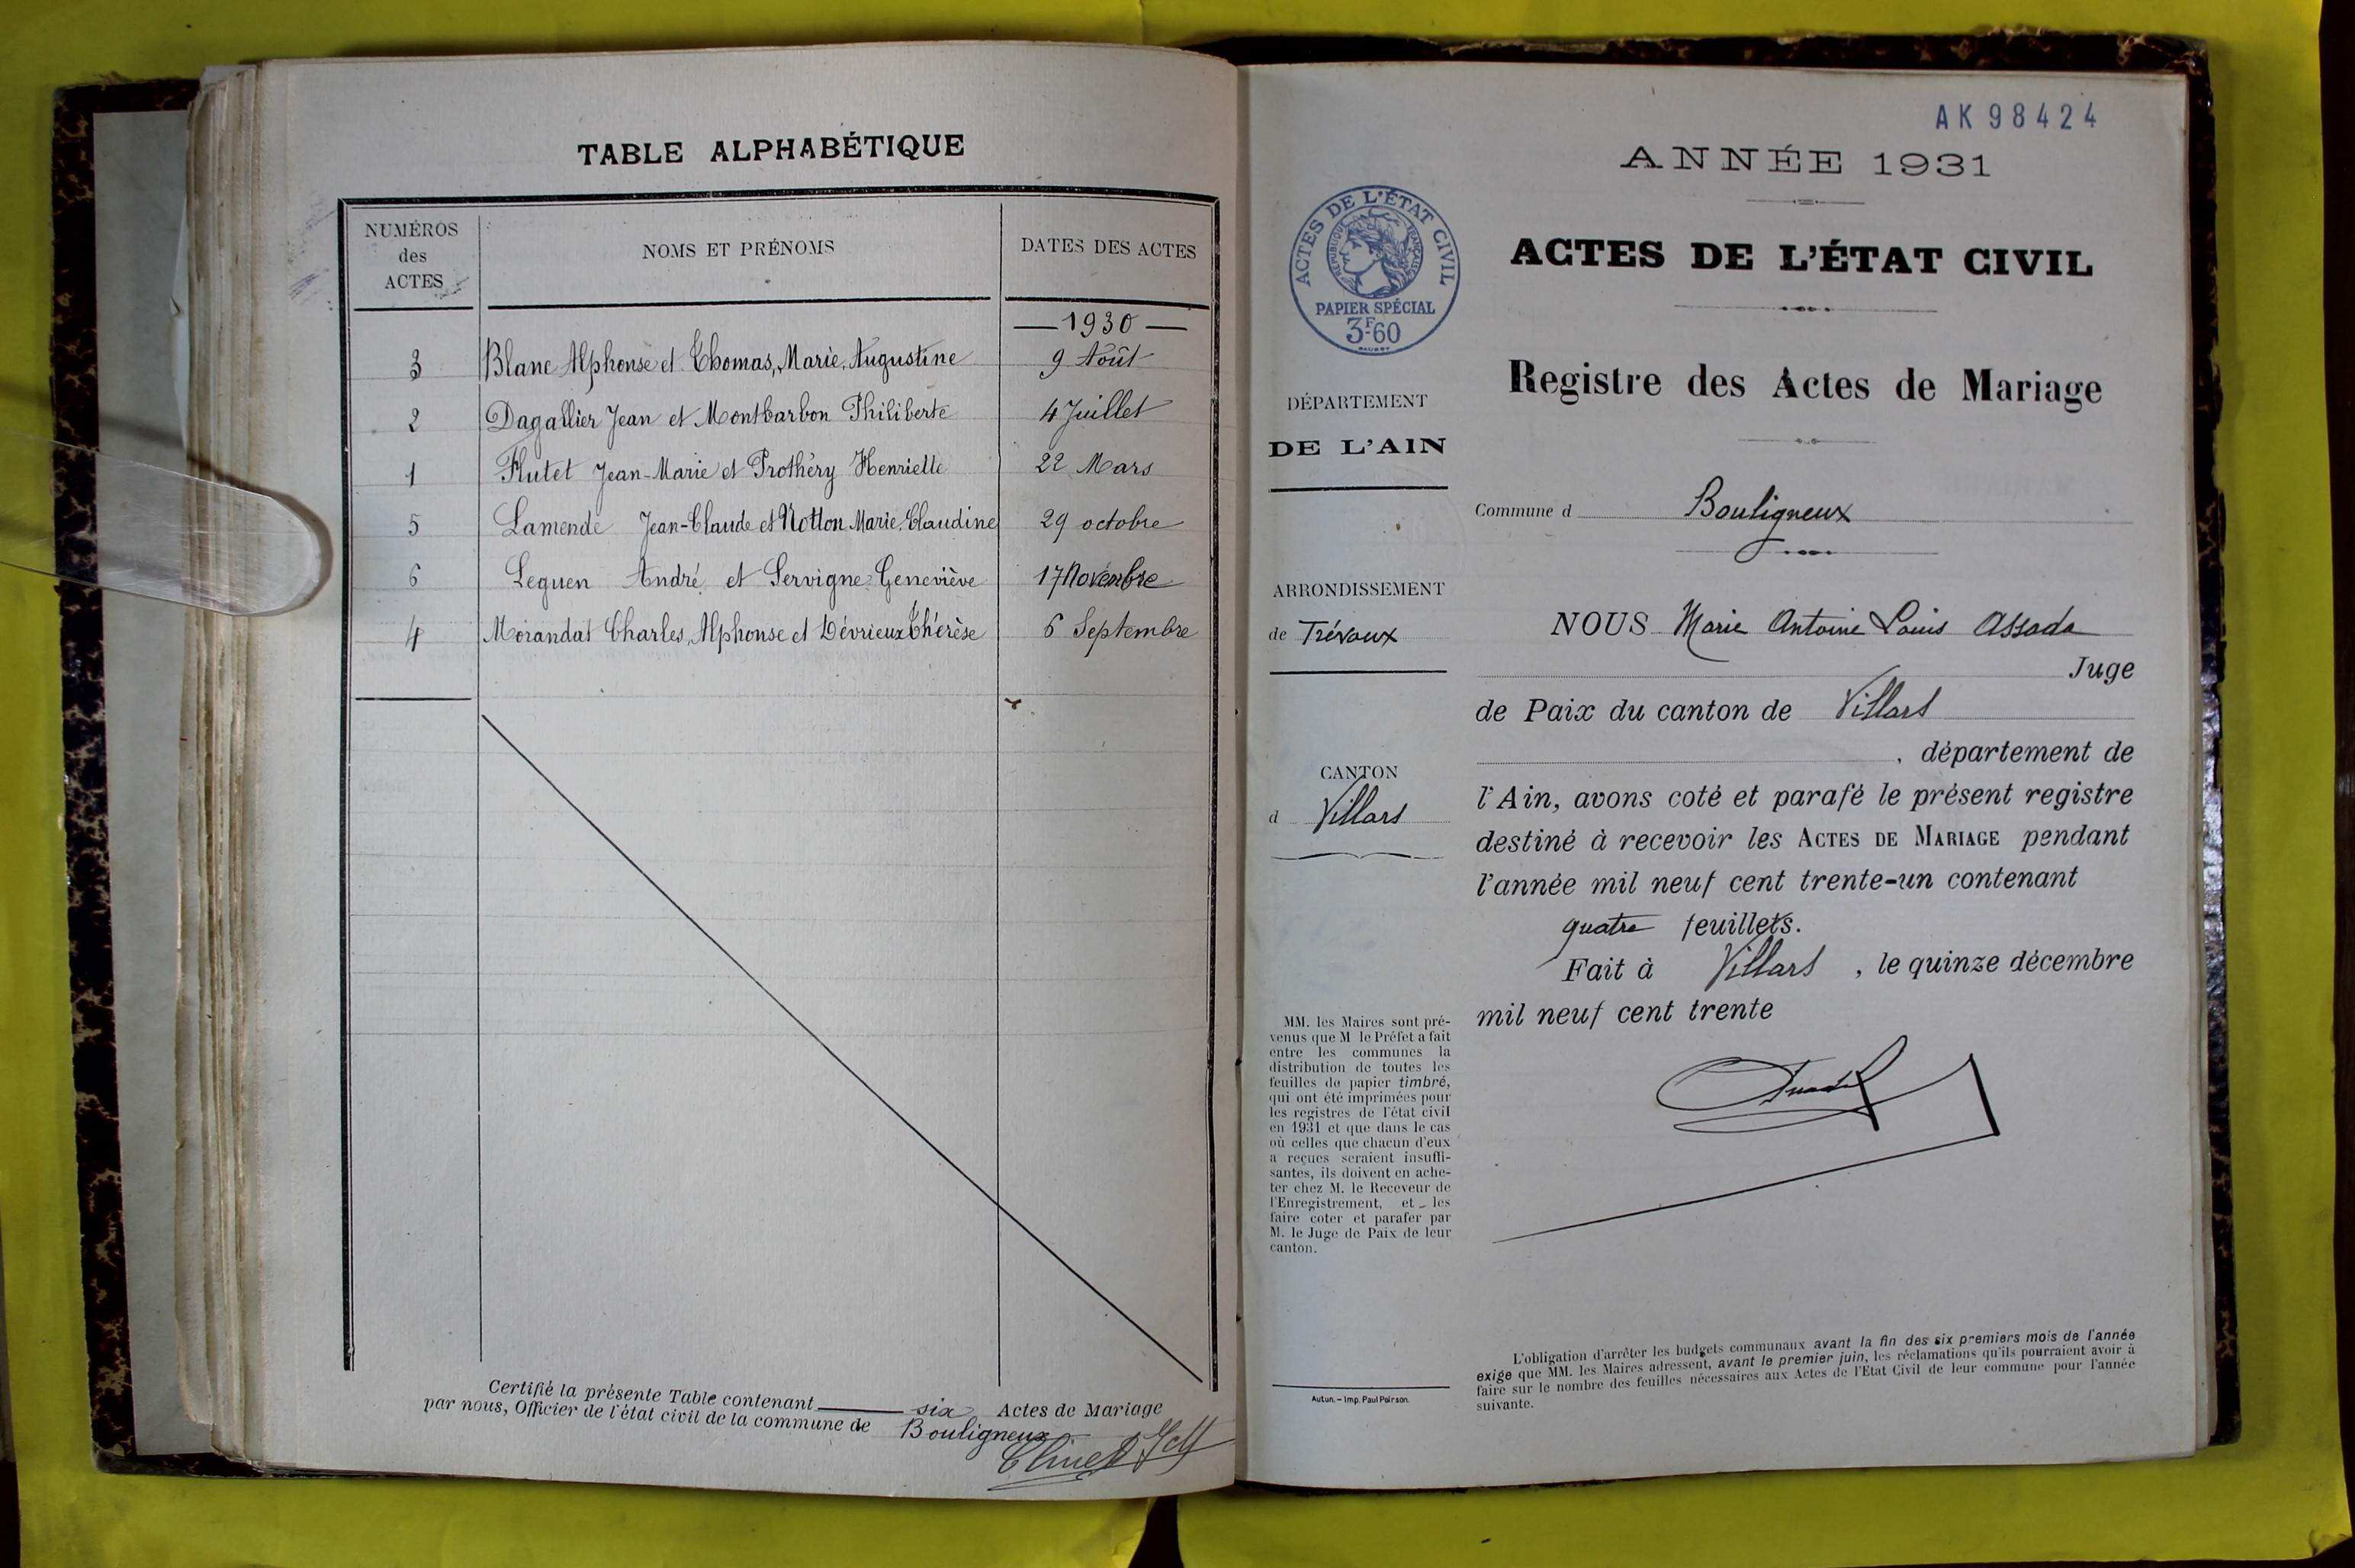 TABLE ALPHABÉTIQUE
NUMÉROS des ACTES
NOMS ET PRÉNOMS
DATES DES ACTES
—1930—
3 Blanc Alphonse et Thomas, Marie, Augustine 9 Août
2 Dagallier Jean et Montbarbon Philiberte 4 Juillet
1 Flutet Jean-Marie et Prothéry Henriette 22 Mars
5 Lamende Jean-Claude et Notton Marie, Claudine 29 octobre
6 Leguen André et Servigne Geneviève 17 Novembre
4 Morandat Charles, Alphonse et Dévrieux Thérèse 6 Septembre
Certifié la présente Table contenant six Actes de Mariage
par nous, Officier de l'état civil de la commune de Bouligneux
AK 98424
ANNÉE 1931
ACTES DE L'ÉTAT CIVIL
RÉPUBLIQUE FRANÇAISE
PAPIER SPÉCIAL
3F.60
ACTES DE L'ÉTAT CIVIL
Registre des Actes de Mariage
DÉPARTEMENT
DE L'AIN
Commune d Bouligneux
ARRONDISSEMENT
de Trévoux
CANTON
d Villars
NOUS Marie Antoine Louis Assada
Juge
de Paix du canton de Villars
, département de
l'Ain, avons coté et parafé le présent registre
destiné à recevoir les ACTES DE MARIAGE pendant
l'année mil neuf cent trente-un contenant
quatre feuillets.
Fait à Villars, le quinze décembre
mil neuf cent trente
MM. les Maires sont pré-
venus que M le Préfet a fait
entre les communes la
distribution de toutes les
feuilles de papier timbré,
qui ont été imprimées pour
les registres de l'état civil
en 1931 et que dans le cas
où celles que chacun d'eux
a reçues seraient insuffi-
santes, ils doivent en ache-
ter chez M. le Receveur de
l'Enregistrement, et les
faire coter et parafer par
M. le Juge de Paix de leur
canton.
Autun. – Imp. Paul Poirson.
L'obligation d'arrêter les budgets communaux avant la fin des six premiers mois de l'année
exige que MM. les Maires adressent, avant le premier juin, les réclamations qu'ils pourraient avoir à
faire sur le nombre des feuilles nécessaires aux Actes de l'Etat Civil de leur commune pour l'année
suivante.